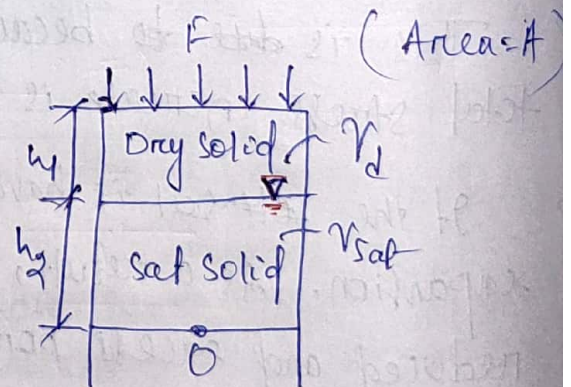 F
(Area=A)
h1
Dry solid
γd
h2
sat solid
γsat
O